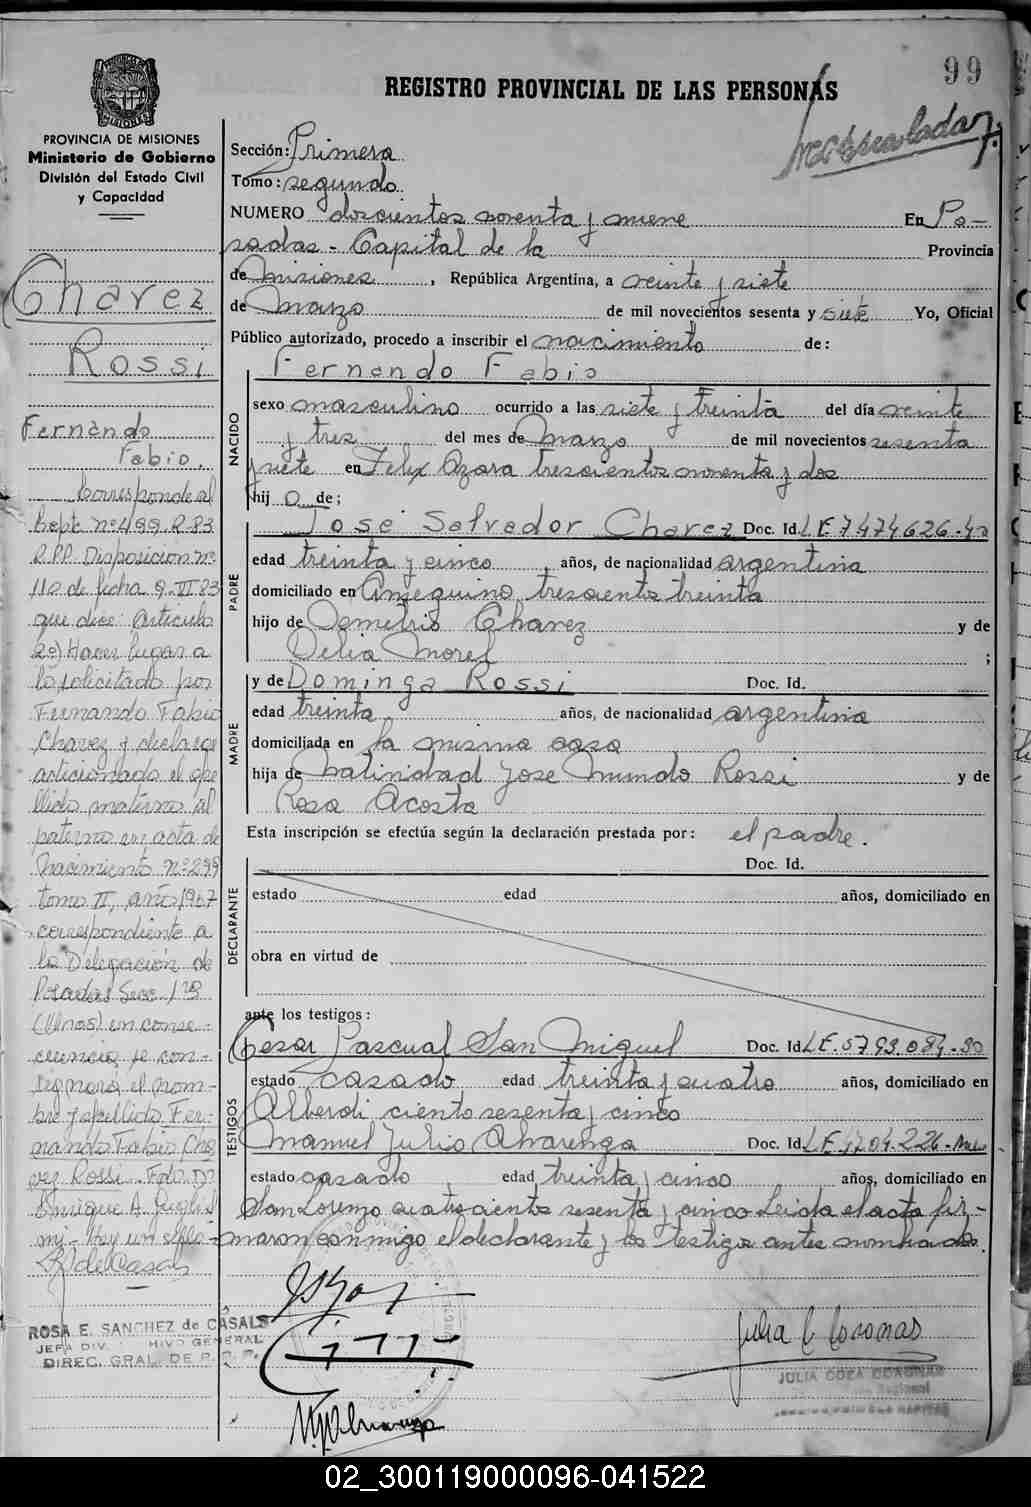 99
REGISTRO PROVINCIAL DE LAS PERSONAS
PROVINCIA DE MISIONES
Ministerio de Gobierno
División del Estado Civil
y Capacidad
Sección: Primera
Tomo: segundo
NUMERO doscientos noventa y nueve En Po-
sadas - Capital de la Provincia
de Misiones, República Argentina, a veinte y siete
de Marzo de mil novecientos sesenta y siete Yo, Oficial
Público autorizado, procedo a inscribir el nacimiento de:
Fernando Fabio
NACIDO
sexo masculino ocurrido a las siete y treinta del día veinte
y tres del mes de Marzo de mil novecientos sesenta
y siete en Felix Azara trescientos noventa y dos
hij o de;
PADRE
José Salvador Chavez Doc. Id. L.E. 7474626-
edad treinta y cinco años, de nacionalidad argentina
domiciliado en Ameguino trescientos treinta
hijo de Demetrio Chavez y de
Delia Morel ;
MADRE
y de Dominga Rossi Doc. Id.
edad treinta años, de nacionalidad argentina
domiciliada en la misma casa
hija de Natividad José Mundo Rossi y de
Rosa Acosta
Esta inscripción se efectúa según la declaración prestada por: el padre.
DECLARANTE
Doc. Id.
estado edad años, domiciliado en
obra en virtud de
ante los testigos:
TESTIGOS
Cesar Pascual San Miguel Doc. Id. L.E. 5793.084-
estado casado edad treinta y cuatro años, domiciliado en
Alberdi ciento sesenta y cinco
Manuel Julio Alvarenga Doc. Id. L.E.
estado casado edad treinta y cinco años, domiciliado en
San Lorenzo cuatrocientos sesenta y cinco Leida el acta fir-
maron conmigo el declarante y los testigos antes nombrados.
Chavez
Rossi
Fernando
Fabio.
Corresponde al
Expte nº 499-R-83
R.P.P. Disposicion nº
110 de fecha 9-VI-83
que dice: Articulo
2º) Hacer lugar a
lo solicitado por
Fernando Fabio
Chavez y declarar
adicionado el ape
llido materno al
paterno en acta de
Nacimiento nº 299
tomo II, año 1967
correspondiente a
la Delegación de
Posadas Secc. 1ra
en conse-
cuencia se con-
signará el nom-
bre y apellido Fer-
nando Fabio Cha
vez Rossi. Fdo. Dr
Enrique A.
mi - Hay un sello-
R. de Casals
ROSA E. SANCHEZ de CASALS
JEFA DIV. GENERAL
DIREC. GRAL. DE R. P. P.
Julia C Coronas
02_300119000096-041522